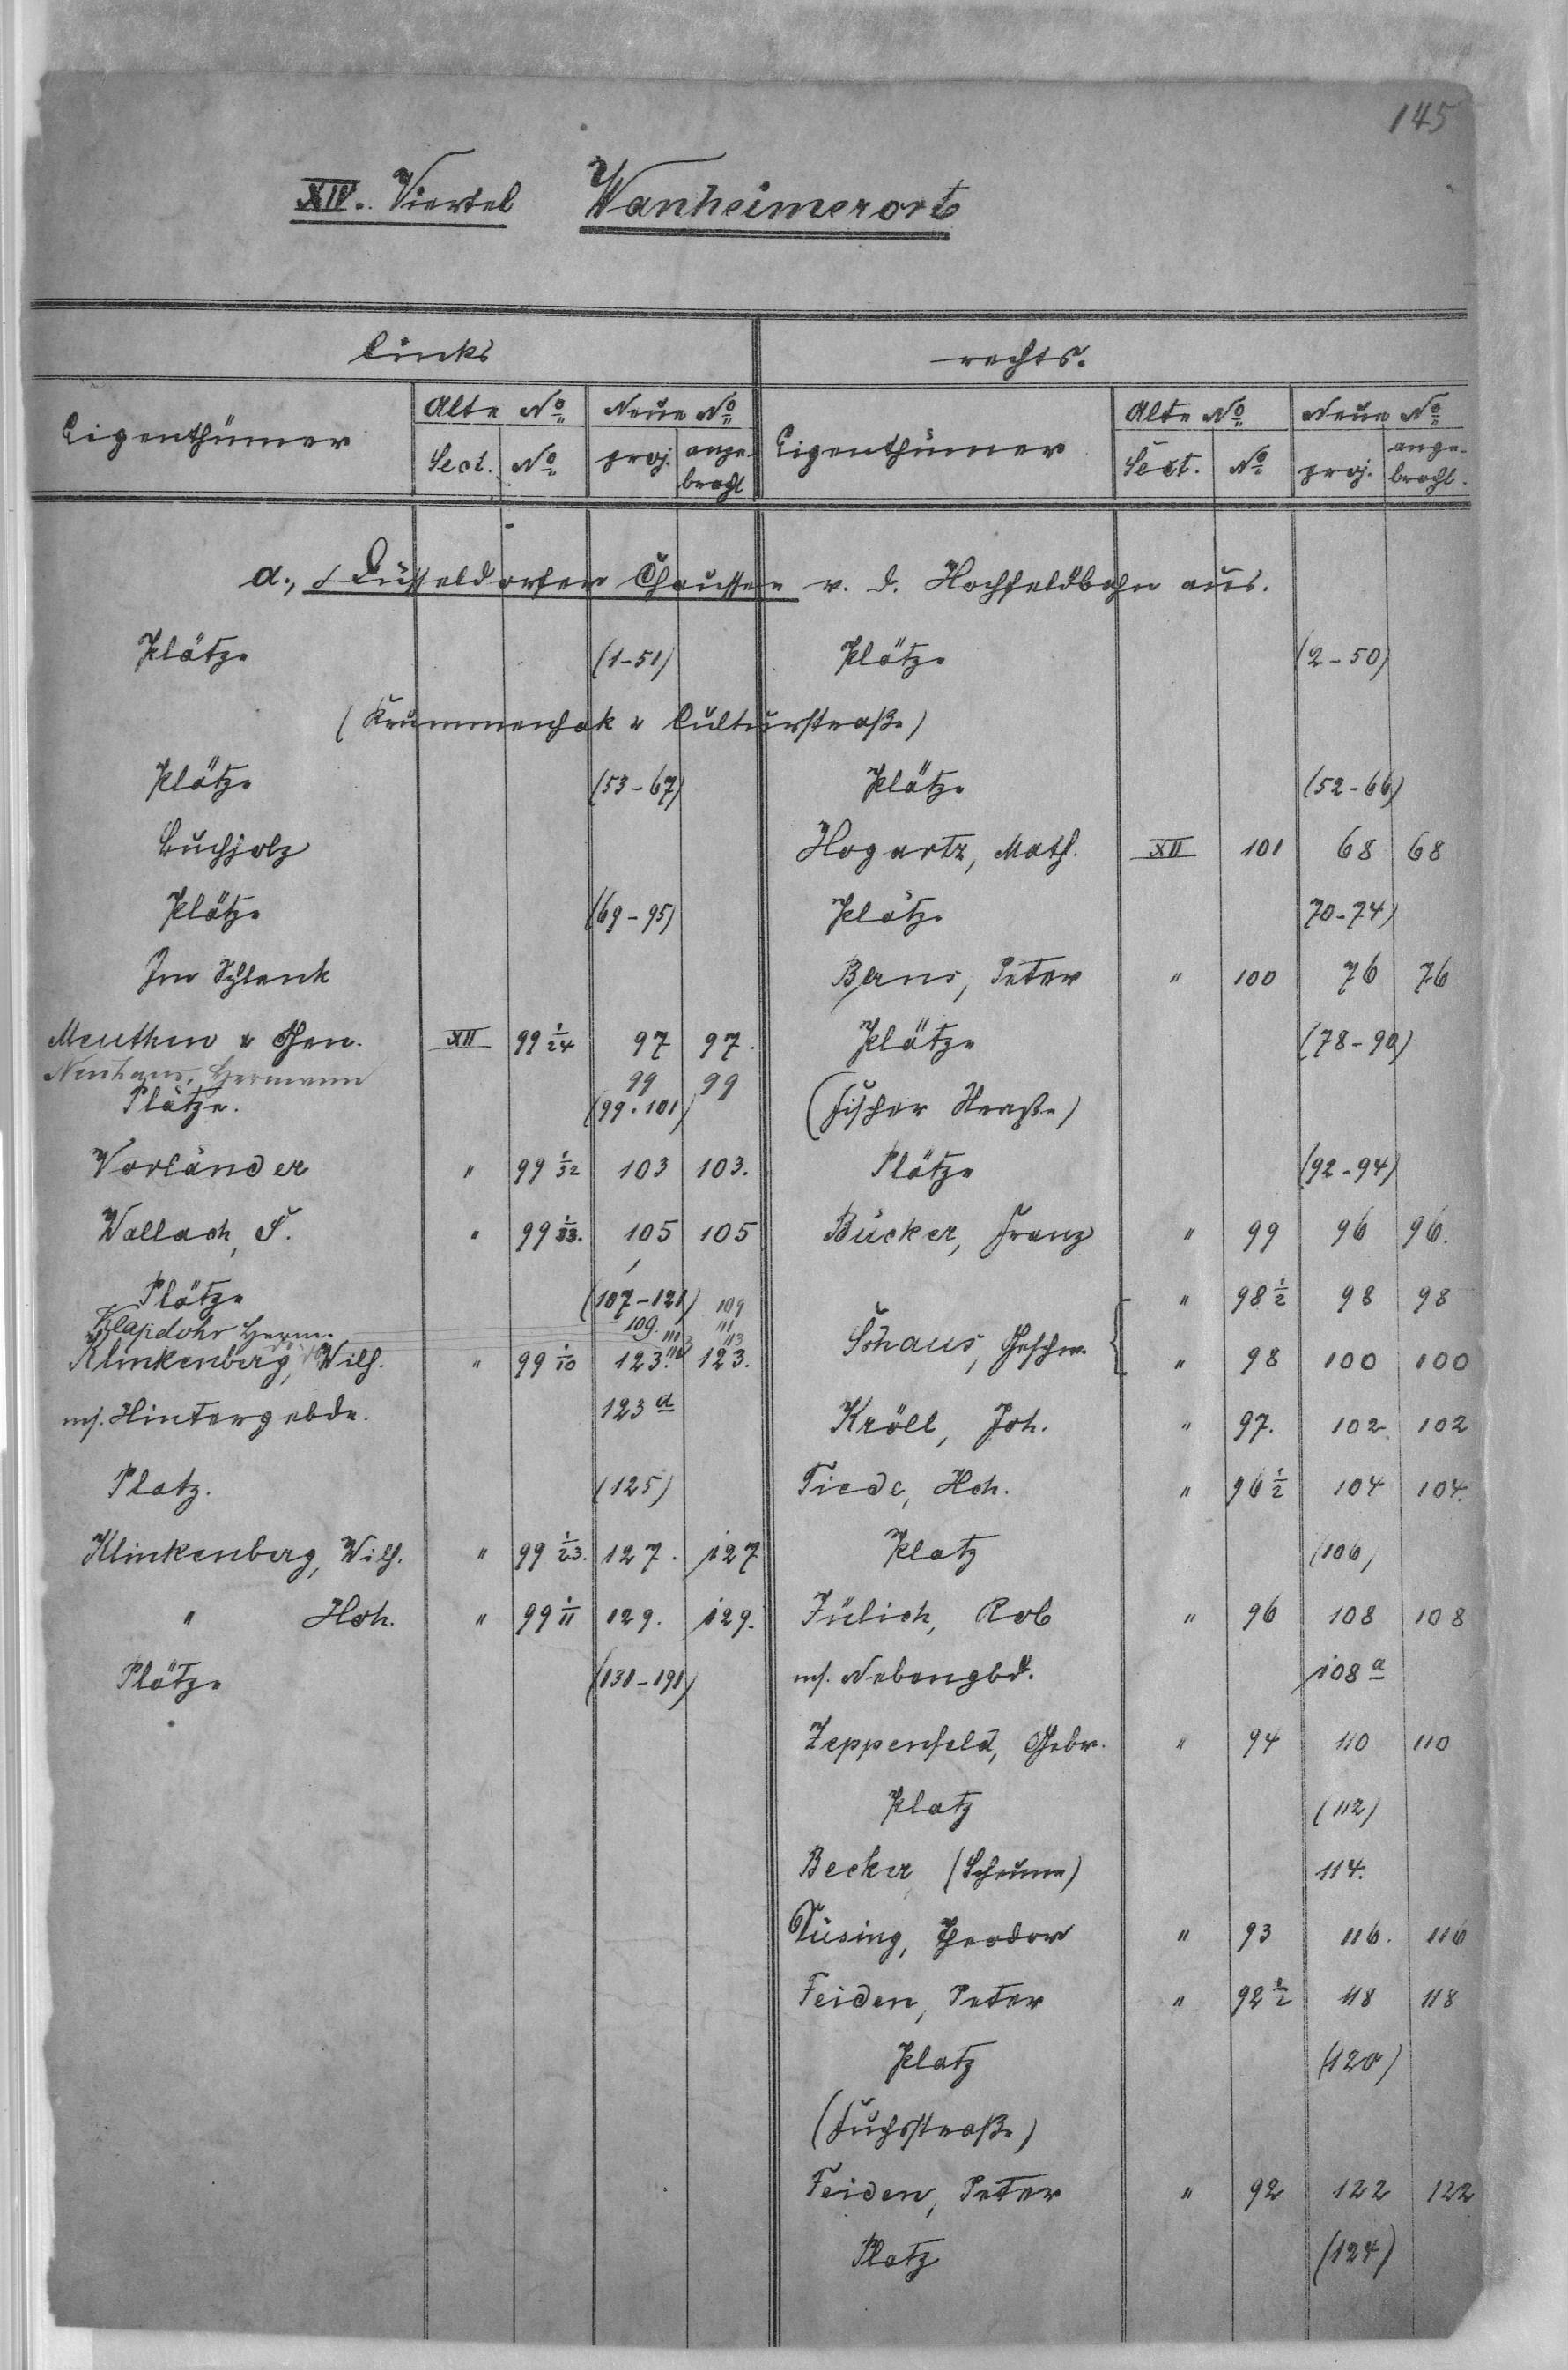 145
XIV. Viertel Wanheimerort
links rechts.
Eigenthümer Alte No Neue No Eigenthümer Alte No Neue No
Sect. No proj. ange- bracht Sect. No proj. ange- bracht.
a., Düsseldorfer Chaussee v. d. Hochfeldbahn aus.
Plätze (1-51) Plätze (2-50)
(Krummenhak & Culturstraße)
Plätze (53-67) Plätze (52-66)
Buchholz Hogartz, Math. XII 101 68 68
Plätze (69-95) Plätze 70-74)
Im Schlenk Berns, Peter " 100 76 76
Meuthen & Gen. XII 99 1/24 97 97. Plätze (78-90)
Neuhaus, Hermann 99 99
Plätze. (99.101) (Fischer Straße)
Vorländer " 99 1/32 103 103. Plätze (92-94)
Wallach, S. " 99 1/33. 105 105 Bücker, Franz " 99 96 96.
Plätze (107-121) 109 " 98 1/2 98 98
Klapdohr Herm. 109. 111 111 113
Klinkenberg, Wilh. " 99 1/10 123. 123. Schaus, Geschw. " 98 100 100
ms. Hintergebde. 123 a Kröll, Joh. " 97. 102 102
Platz. (125) Tiede, Hch. " 96 1/2 104 104.
Klinkenberg, Wilh. " 99 1/23. 127. 127 Platz (106)
" Hch. " 99 1/11 129. 129. Jülich, Rob " 96 108 108
Plätze (131-191) ms. Nebengbd. 108 a
Zeppenfeld, Gebr. " 94 110 110
Platz (112)
Becker (Scheune) 114.
Düsing, Theodor " 93 116. 116
Feiden, Peter " 92 1/2 118 118
Platz (120)
(Fuchsstraße)
Feiden, Peter " 92 122 122
Platz (124)